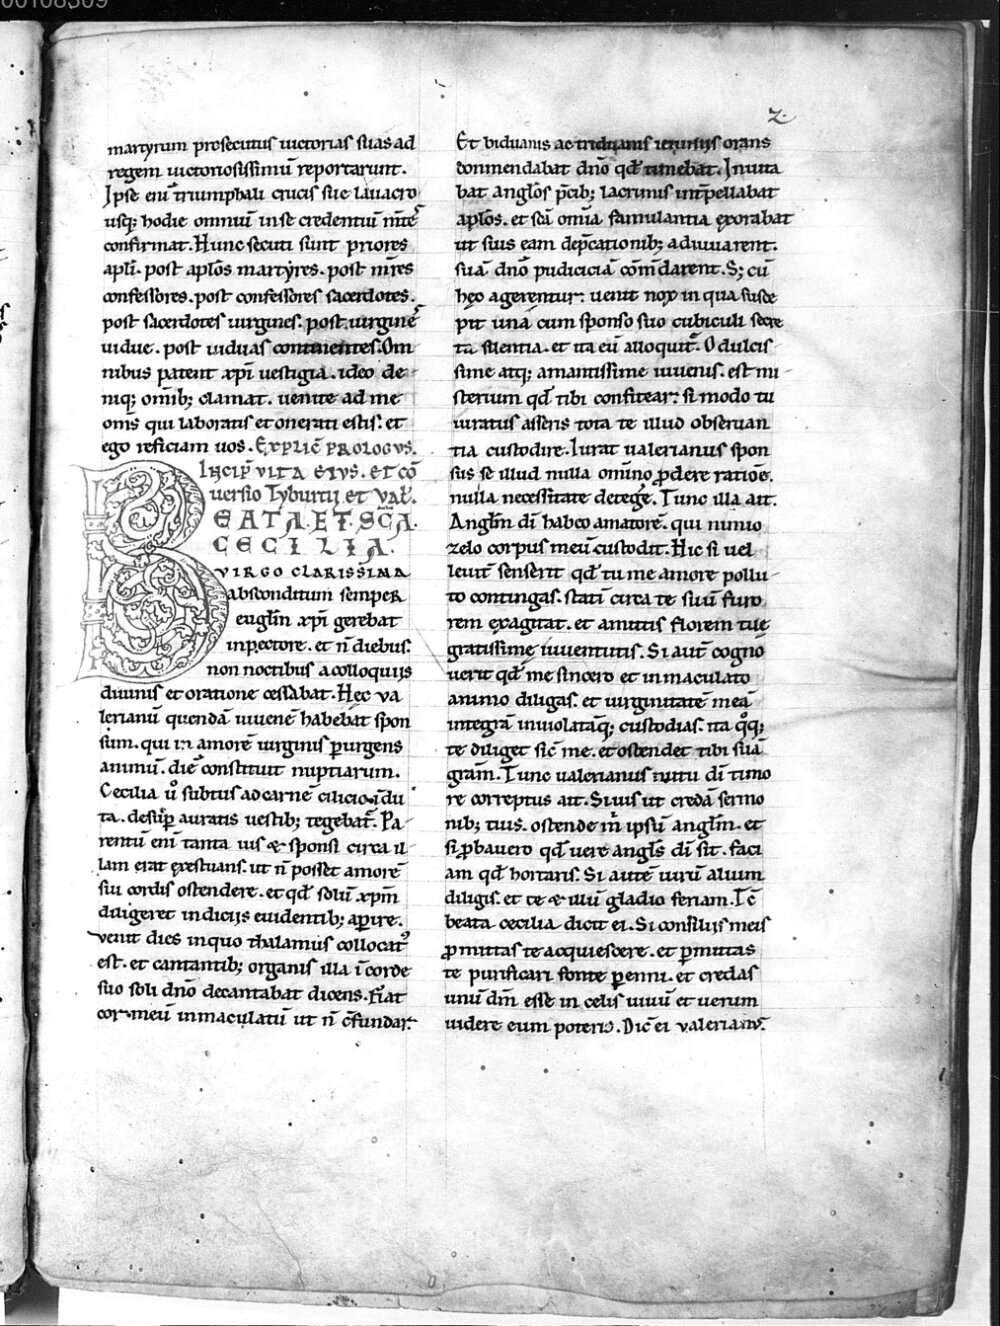 00108309
2.
martyrum prosecutus uictorias suas ad
regem uictoriosissimū reportarunt.
Ipse eni triumphali crucis sue lauacro
usq; hodie omniū in se credentiū m̄tes
confirmat. Hunc secuti sunt priores
apl̄i. post apl̄os martyres. post m̄res
confessores. post confessores sacerdotes.
post sacerdotes uirgines. post uirgines
uidue. post uiduas continentes. Om
nibus patent xp̄i uestigia. ideo de-
niq; omīb; clamat. uenite ad me
om̄s qui laboratis et onerati estis. et
ego reficiam uos. Explic̄ prologvs.
Incip̄ vita eivs. et cō
uersio Tyburtii et Val̄.
BEATA ET SC̄A
CECILIA.
VIRGO CLARISSIMA
absconditum semper
euglīn xp̄i gerebat
in pectore. et n̄ diebus.
non noctibus a colloquiis
diuinis et oratione cessabat. Hec va
lerianū quendā iuuenē habebat spon
sum. qui in amorē uirginis p̄urgens
animū. diē constituit nuptiarum.
Cecilia ů subtus ad carnē cilicio īdu
ta. desup̄ auratis uestib; tegebat̄. Pa-
rentū eni tanta uis & sponsi circa il-
lam erat exestuans. ut n̄ posset amorē
sui cordis ostendere. et qd̄ solū xp̄m
diligeret indiciis euidentib; aꝑire.
Venit dies in quo thalamus collocat᷒
est. et cantantib; organis illa ī corde
suo soli dn̄o decantabat dicens. Fiat
cor meū inmaculatū ut n̄ c̄fundar.
Et biduanis ac triduanis ieiuniis orans
conmendabat dn̄o qd̄ timebat. Inuita
bat angl̄os p̄cib; lacrimis int̄pellabat
apl̄os. et sc̄a om̄ia famulantia exorabat
ut suis eam dep̄cationib; adiuuarent.
suā dn̄o pudiciciā com̄darent. S; cū
hęc agerentur. uenit nox in qua susce
pit una cum sponso suo cubiculi secre
ta silentia. et ita eū alloquit̄. O dulcis
sime atq; amantissime iuuenis. est mi-
sterium qd̄ tibi confitear: si modo tu
iuratus asseris tota te illud obseruan
tia custodire. Iurat ualerianus spon
sus se illud nulla omīno ꝓdere ratiōe.
nulla necessitate deteg̅e. Tunc illa ait.
Angl̄m dī habeo amatorē. qui nimio
zelo corpus meū custodit. Hic si uel
leuit̄ senserit qd̄ tu me amore pollu-
to contingas. statī circa te suū furo
rem exagitat. et amittis florem tue
gratissime iuuentutis. Si aut̄ cogno
uerit qd̄ me sincero et inmaculato
animo diligas. et uirginitatē meā
integrā inuiolatāq; custodias. ita qͦq;
te diliget sic̄ me. et ostendet tibi suā
grām. Tunc ualerianus nutu dī timo
re correptus ait. Si uis ut credā sermo
nib; tuis. ostende m̄ ipsū angl̄m. et
si ꝓbauero qd̄ uere angl̄s dī sit. faci
am qd̄ hortaris. Si autē uirū alium
diligis. et te & illū gladio feriam. Tc̄
beata cecilia dicit ei. Si consiliis meis
ꝓmittas te acquiescere. et ꝑmittas
te purificari fonte ꝑenni. et credas
unū dm̄ esse in celis uiuū et uerum
uidere eum poteris. Dic̄ ei valerian᷒.